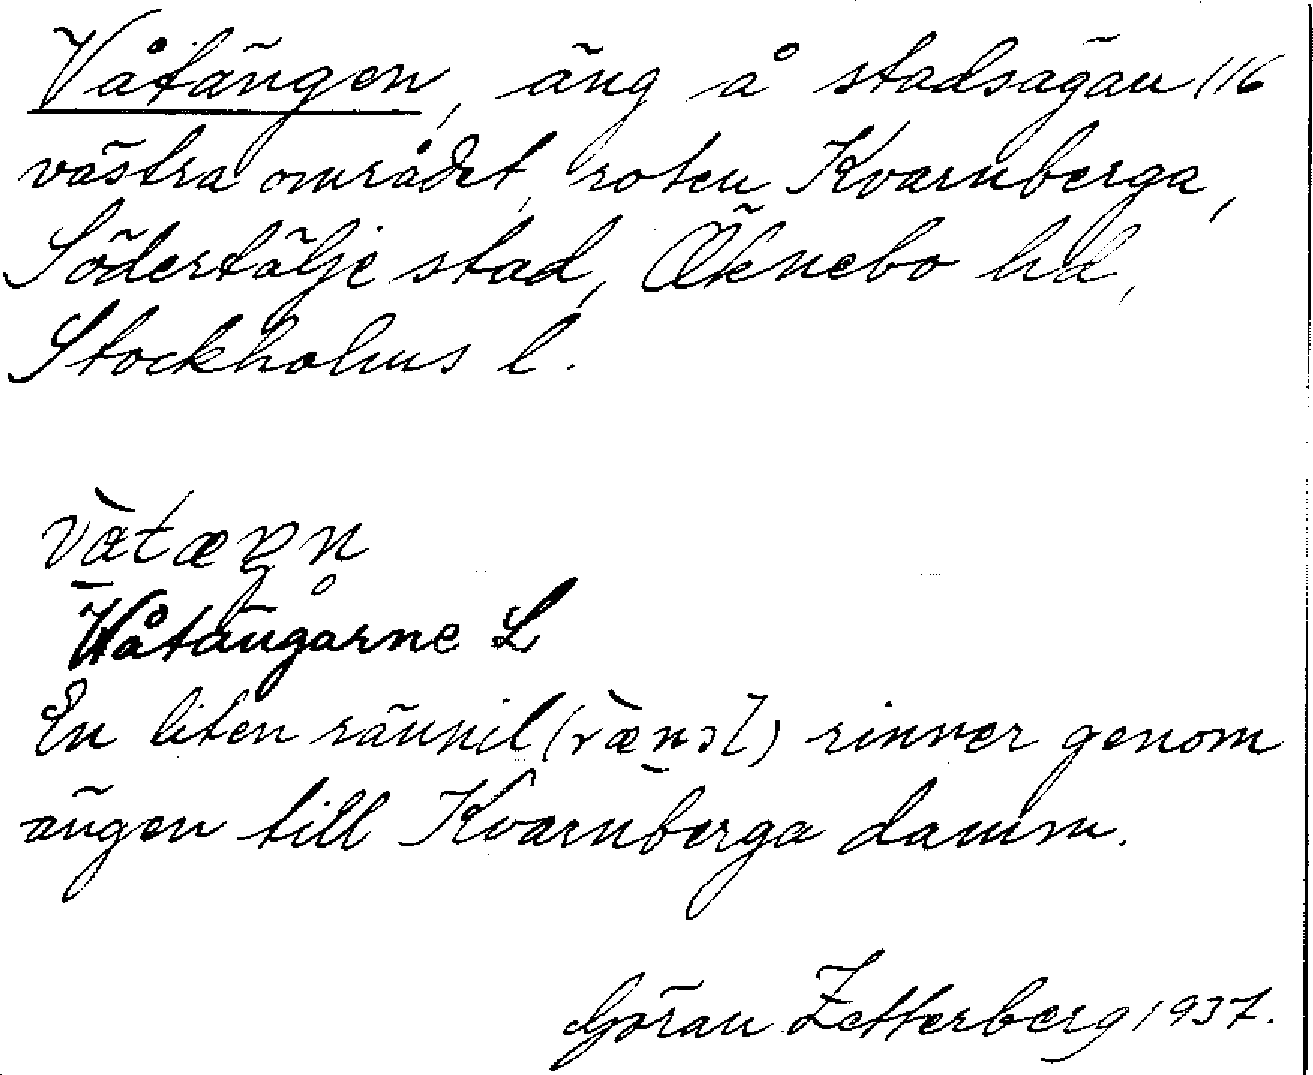 Våtängen, äng å stadsägan 116
västra området, roten Kvarnberga,
Södertälje stad, Öknebo hd,
Stockholms l.
våtæŋn
Våtängarne L
En liten rännil (rænəl) rinner genom
ängen till Kvarnberga damm.
Göran Zetterberg 1937.